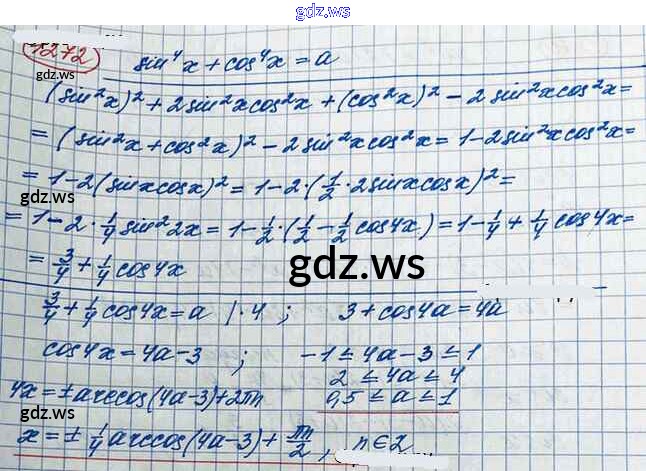 gdz.ws
1272 sin⁴x + cos⁴x = a
gdz.ws
(sin²x)² + 2sin²xcos²x + (cos²x)² - 2sin²xcos²x =
= (sin²x + cos²x)² - 2sin²xcos²x = 1 - 2sin²xcos²x =
= 1 - 2(sinxcosx)² = 1 - 2·(1/2·2sinxcosx)² =
gdz.ws
= 1 - 2·1/4 sin²2x = 1 - 1/2·(1/2 - 1/2 cos4x) = 1 - 1/4 + 1/4 cos4x =
= 3/4 + 1/4 cos4x
gdz.ws
3/4 + 1/4 cos4x = a |·4 ; 3 + cos4a = 4a
cos4x = 4a - 3 ; -1 ≤ 4a - 3 ≤ 1
2 ≤ 4a ≤ 4
4x = ± arccos(4a-3) + 2πn 0,5 ≤ a ≤ 1
gdz.ws
x = ± 1/4 arccos(4a-3) + πn/2, n∈Z
gdz.ws